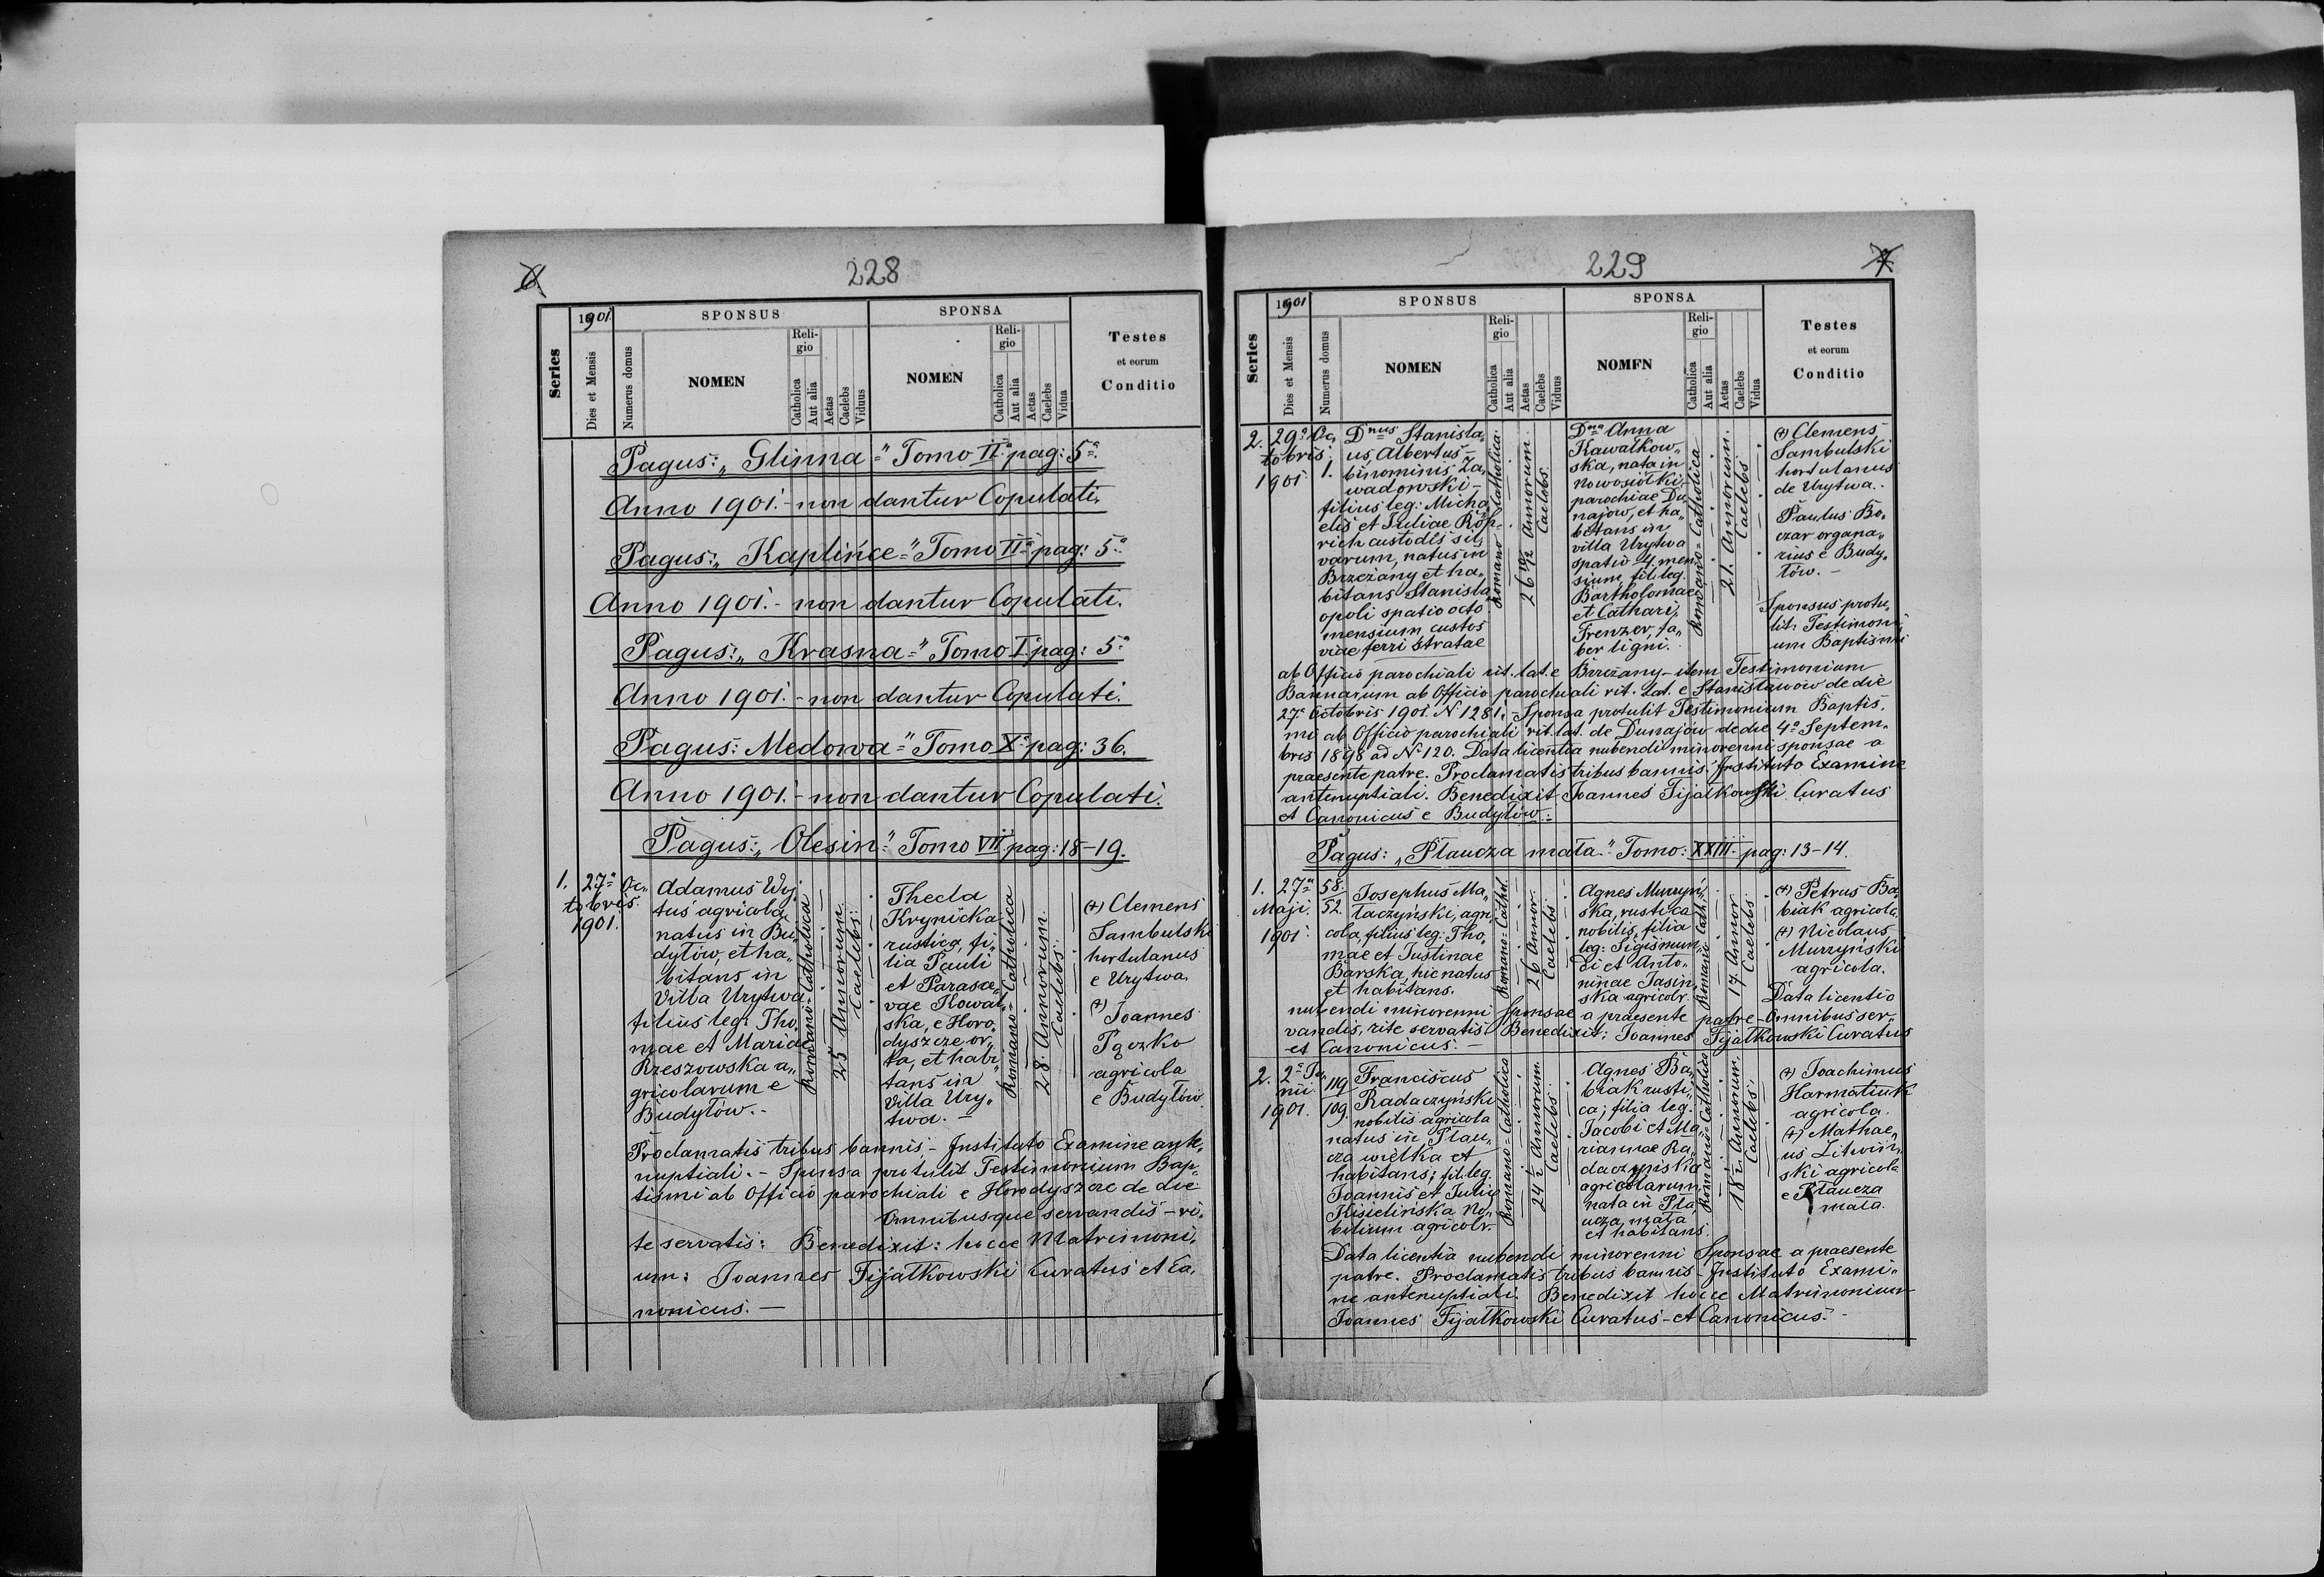 6.
228
1901.
SPONSUS
SPONSA
Series
Dies et Mensis
Numerus domus
NOMEN
Reli-
gio
Catholica
Aut alia
Aetas
Caelebs
Viduus
NOMEN
Reli-
gio
Catholica
Aut alia
Aetas
Caelebs
Vidua
Testes
et eorum
Conditio
Pagus: „Glinna" Tomo II° pag: 5ª
Anno 1901. - non dantur Copulati.
Pagus: „Kaplińce" Tomo II° pag: 5ª
Anno 1901. - non dantur Copulati.
Pagus: „Krasna" Tomo I° pag: 5ª
Anno 1901. - non dantur Copulati.
Pagus: Medowa" Tomo X° pag: 36.
Anno 1901. - non dantur Copulati.
Pagus: „Olesin" Tomo VII pag: 18-19.
1.
27ª Oc„
tobris
1901.
Adamus Woj„
tuś agricola
natus in Bu„
dyłów, et ha„
bitans in
Villa Urytwa
filius leg: Tho„
mae et Mariae
Rzeszowska a„
gricolarum e
Budyłów. -
Romano-Catholica
25 Annorum
Caelebs.
Thecla
Krynicka
rustica, fi„
lia Pauli
et Parasce„
vae Kowal„
ska, e Horo„
dyszcze or„
ta, et habi„
tans in
Villa Ury„
twa. -
Romano-Catholica
28. Annorum
Caelebs.
(+) Clemens
Sambulski
hortulanus
e Urytwa.
(+)
Joannes
Pączko
agricola
e Budyłów.
Proclamatis tribus bannis, - Instituto Examine ante„
nuptiali. - Sponsa protulit Testimonium Bap„
tismi ab Officio parochiali e Horodyszcze de die
Omnibusque servandis - ri„
te servatis: Benedixit: hocce Matrimoni„
um: Joannes Fijałkowski Curatus et Ca„
nonicus. -
229
7.
1901
SPONSUS
SPONSA
Series
Dies et Mensis
Numerus domus
NOMEN
Reli-
gio
Catholica
Aut alia
Aetas
Caelebs
Viduus
NOMEN
Reli-
gio
Catholica
Aut alia
Aetas
Caelebs
Vidua
Testes
et eorum
Conditio
2.
29ª Oc„
tobris
1901.
1.
Dnus Stanisla„
us, Albertus -
binominis Za„
wadowski -
filius leg: Micha„
elis et Juliae Röh„
rich custodis sil„
varum, natus in
Brzeżany et ha„
bitans Stanisla„
opoli spatio octo
mensium, custos
viae ferri stratae
Romano Catholica.
26 1/2 Annorum
Caelebs.
Dna Anna
Kawałkow„
ska, nata in
Nowosiółki,
parochiae Du„
najów, et ha„
bitans in
villa Urytwa
spatio 4. men„
sium, fil. leg.
Bartholomaei
et Cathari.
Frenzer, fa„
ber ligni.
Romano-Catholica
21. Annorum.
Caelebs
(+) Clemens
Sambulski
hortulanus
de Urytwa.
Paulus Bo„
czar organa„
rius e Budy„
łów. -
Sponsus protu„
lit Testimoni„
um Baptismi
ab Officio parochiali rit. lat. e Brzeżany - item Testimonium
Bannarum ab Officio parochiali rit. Lat. e Stanisławów de die
27ª Octobris 1901. N 1281. - Sponsa protulit Testimonium Baptis„
mi ab Officio parochiali rit. lat. de Dunajów de die 4ª Septem„
bris 1898 ad N 120. Data licentia nubendi minorenni sponsae a
praesente patre. Proclamatis tribus bannis. Instituto Examine
antenuptiali. Benedixit Joannes Fijałkowski Curatus
et Canonicus e Budyłów. -
Pagus: „Płaucza mała" Tomo: XXIII pag: 13-14.
1.
27ª
Maji.
1901.
58.
52.
Josephus Ma„
łaczyński, agri„
cola, filius leg: Tho„
mae et Justinae
Barska, hic natus
et habitans.
Romano-Cathol.
26 Annor.
Caelebs
Agnes Murzyń„
ska, rustica
nobilis, filia
leg: Sigismun„
di et Anto„
ninae Jasiń„
ska agricolr.
Romano Cath.
17 Annor.
Caelebs.
(+) Petrus Ba„
biak agricola.
(+) Nicolaus
Murzyński
agricola.
Data licentio
nubendi minorenni Sponsae a praesente patre - Omnibus ser„
vandis, rite servatis. Benedixit: Joannes Fijałkowski Curatus
et Canonicus. -
2.
2ª Ju„
nii
1901.
119
109.
Franciscus
Radaczyński
nobilis agricola
natus in Płau„
cza wielka et
habitans; fil. leg.
Joannis et Julie
Kisielińska No„
bilium agricolr.
Romano-Catholica
24 1/2 Annorum.
Caelebs.
Agnes Ba„
biak rusti„
ca; filia leg.
Jacobi et Ma„
riannae Ra„
daczyńska
agricolarum,
nata in Pła„
ucza, mała
et habitans.
Romano-Catholica
18 1/2 Annorum.
Caelebs.
(+) Joachimus
Harmatiuk
agricola.
(+) Mathae„
us Litwin„
ski agricola
e Płaucza
mała.
Data licentia nubendi minorenni Sponsae a praesente
patre. Proclamatis tribus bannis - Instituto Exami„
ne antenuptiali. Benedixit hocce Matrimonium
Joannes Fijałkowski Curatus - et Canonicus. -